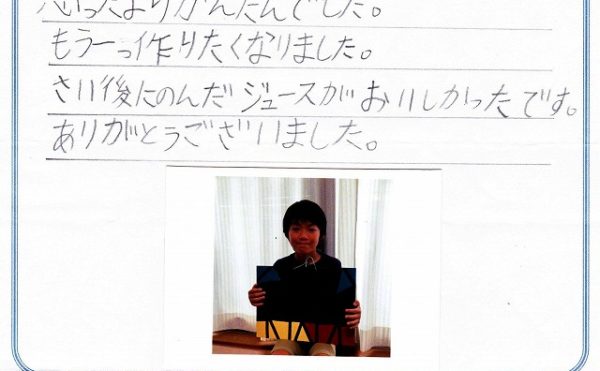 思ったよりかんたんでした。
もう一つ作りたくなりました。
さい後にのんだジュースがおいしかったです。
ありがとうございました。